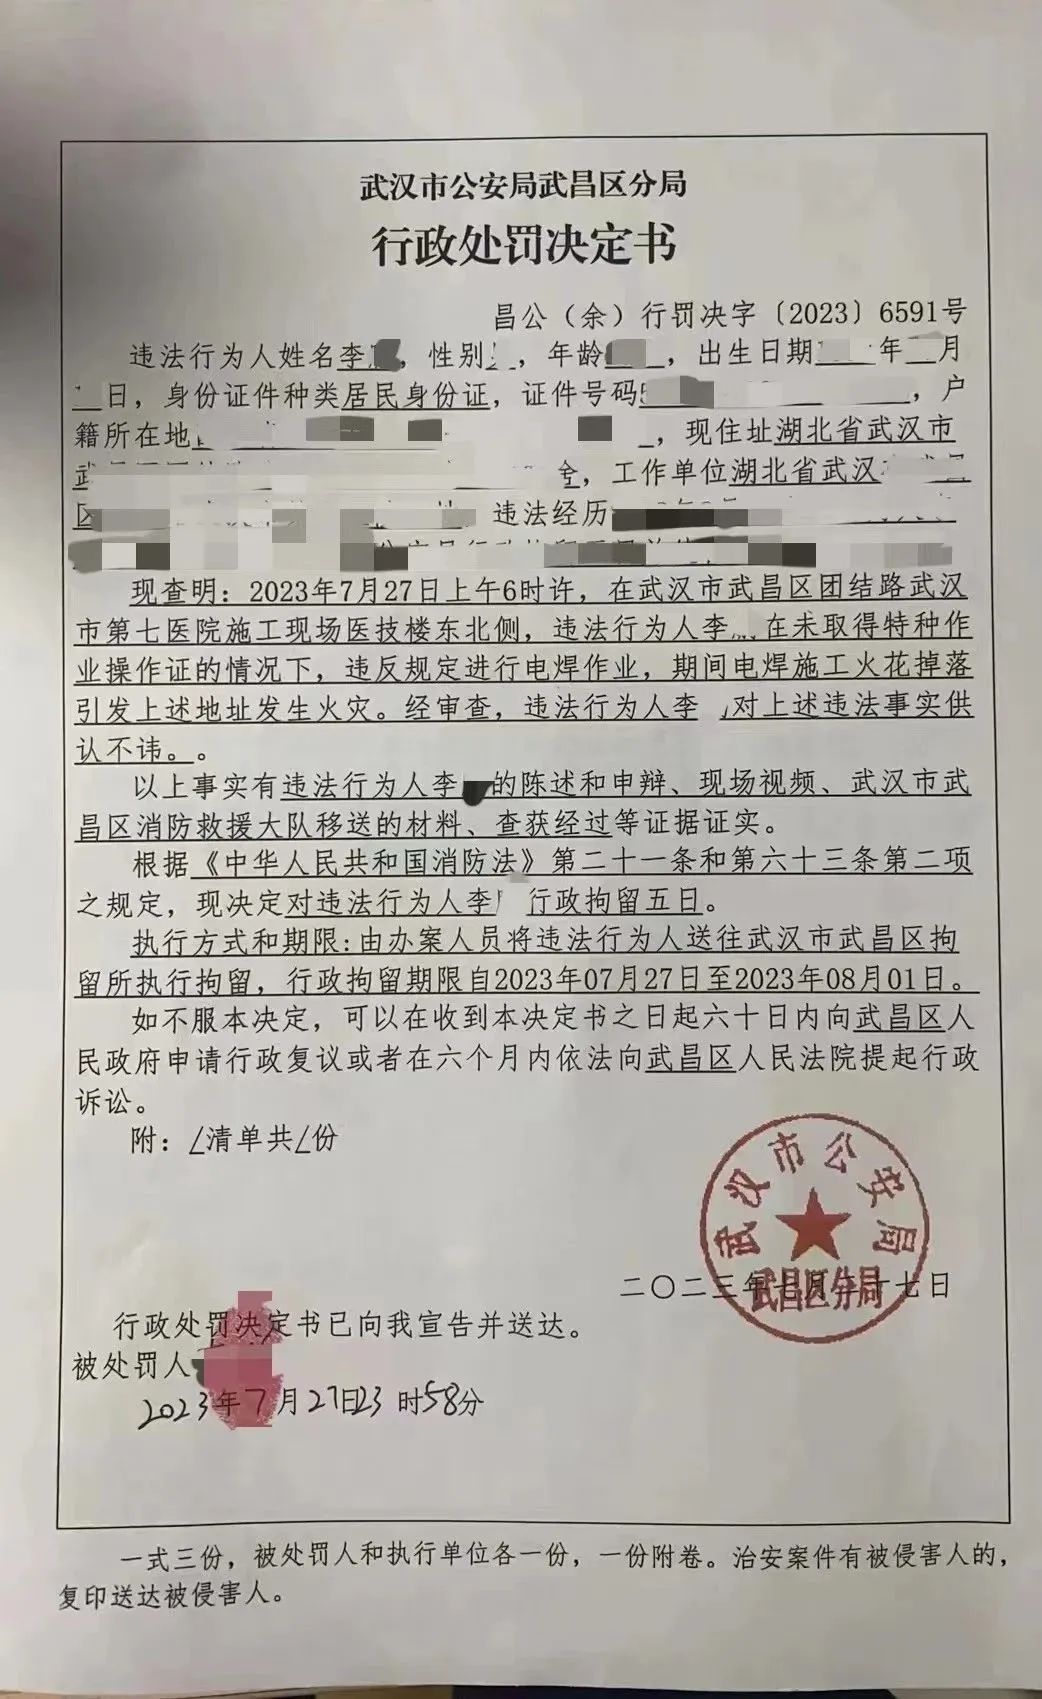 武汉市公安局武昌区分局
行政处罚决定书
昌公（余）行罚决字〔2023〕6591号
违法行为人姓名李，性别，年龄，出生日期年月
日，身份证件种类居民身份证，证件号码，户
籍所在地，现住址湖北省武汉市
武，工作单位湖北省武汉
区 违法经历
现查明：2023年7月27日上午6时许，在武汉市武昌区团结路武汉
市第七医院施工现场医技楼东北侧，违法行为人李 在未取得特种作
业操作证的情况下，违反规定进行电焊作业，期间电焊施工火花掉落
引发上述地址发生火灾。经审查，违法行为人李 对上述违法事实供
认不讳。。
以上事实有违法行为人李 的陈述和申辩、现场视频、武汉市武
昌区消防救援大队移送的材料、查获经过等证据证实。
根据《中华人民共和国消防法》第二十一条和第六十三条第二项
之规定，现决定对违法行为人李 行政拘留五日。
执行方式和期限：由办案人员将违法行为人送往武汉市武昌区拘
留所执行拘留，行政拘留期限自2023年07月27日至2023年08月01日。
如不服本决定，可以在收到本决定书之日起六十日内向武昌区人
民政府申请行政复议或者在六个月内依法向武昌区人民法院提起行政
诉讼。
附：/清单共/份
武汉市公安局
武昌区分局
二〇二三年七月二十七日
行政处罚决定书已向我宣告并送达。
被处罚人
2023年7月27日23时58分
一式三份，被处罚人和执行单位各一份，一份附卷。治安案件有被侵害人的，
复印送达被侵害人。